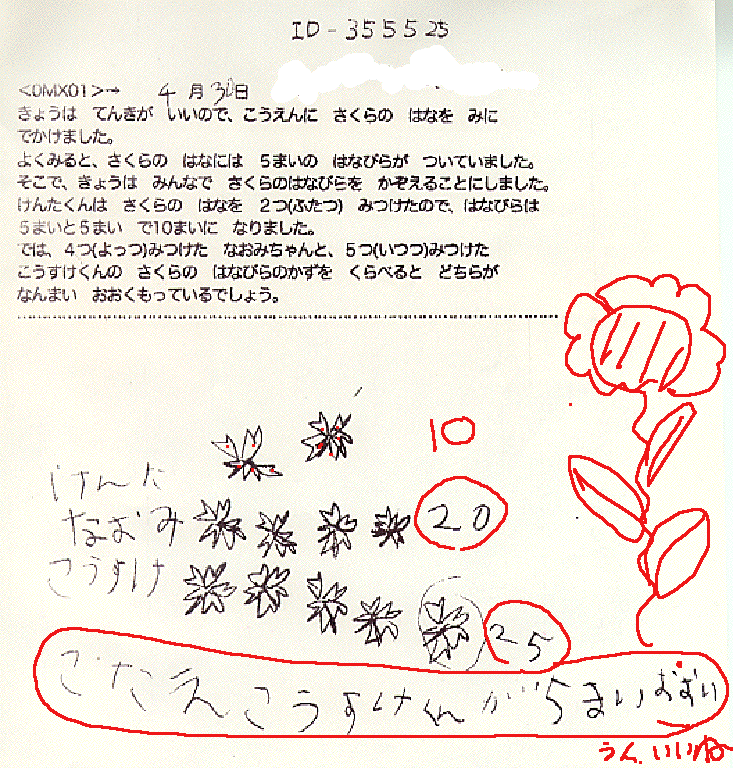 ID-355525
<0MX01>→ 4月30日
きょうは てんきが いいので、こうえんに さくらの はなを みに
でかけました。
よくみると、さくらの はなには 5まいの はなびらが ついていました。
そこで、きょうは みんなで さくらのはなびらを かぞえることにしました。
けんたくんは さくらの はなを 2つ(ふたつ) みつけたので、はなびらは
5まいと5まい で10まいに なりました。
では、4つ(よっつ)みつけた なおみちゃんと、5つ(いつつ)みつけた
こうすけくんの さくらの はなびらのかずを くらべると どちらが
なんまい おおくもっているでしょう。
けんた 10
なおみ 20
こうすけ 25
こたえこうすけくんが5まいおおい
うん、いいね